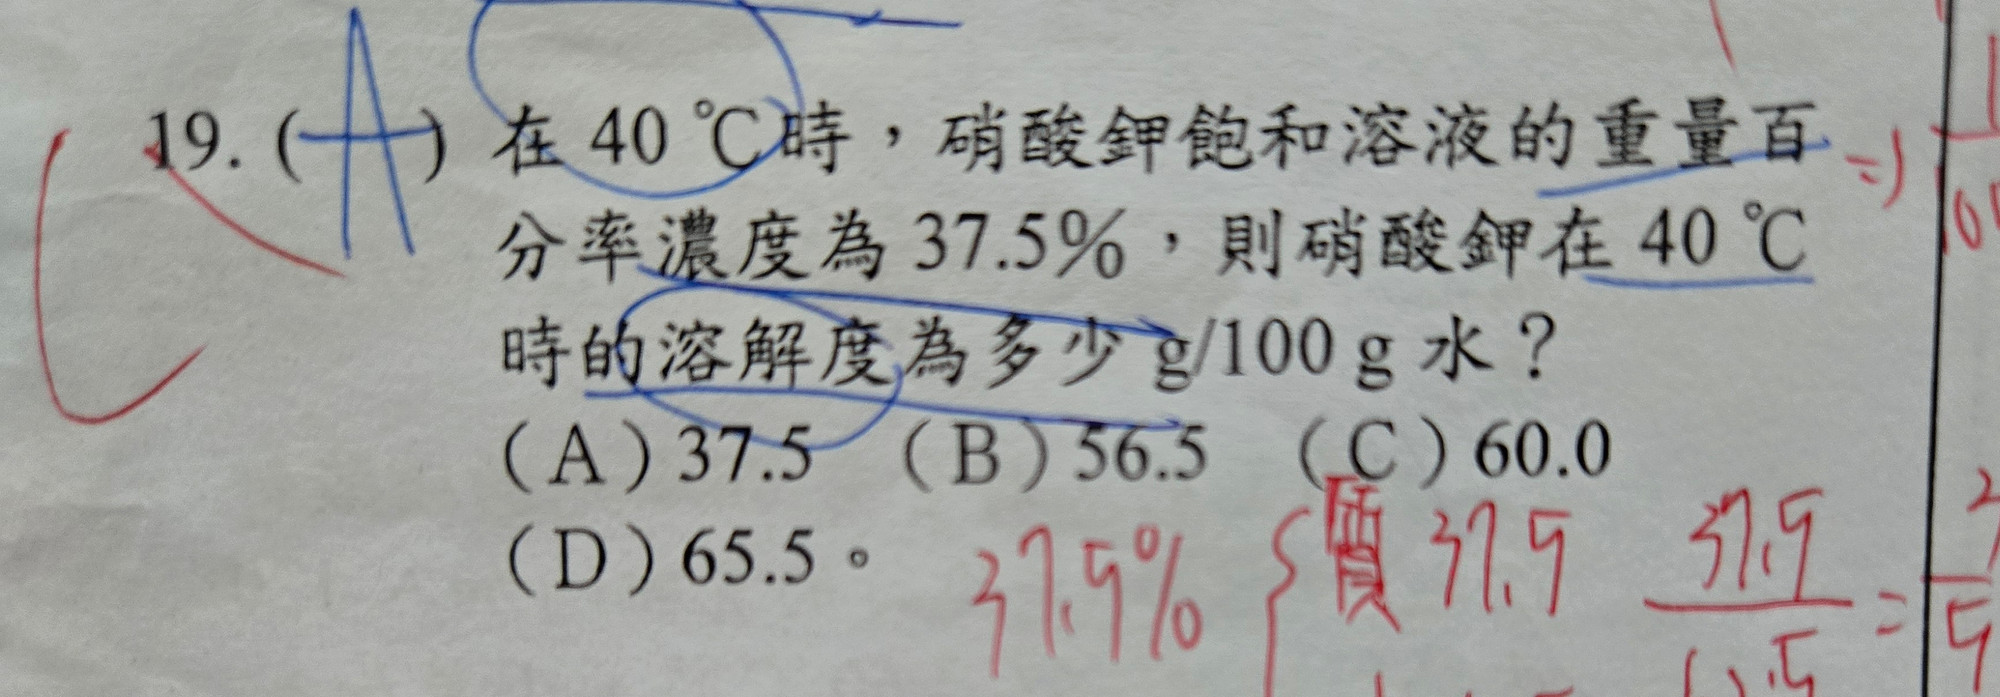 19. (A) 在 40 ℃時，硝酸鉀飽和溶液的重量百
分率濃度為 37.5%，則硝酸鉀在 40 ℃
時的溶解度為多少 g/100 g 水？
(A) 37.5 (B) 56.5 (C) 60.0
(D) 65.5。
37.5% { 質 37.5 37.5
=
C